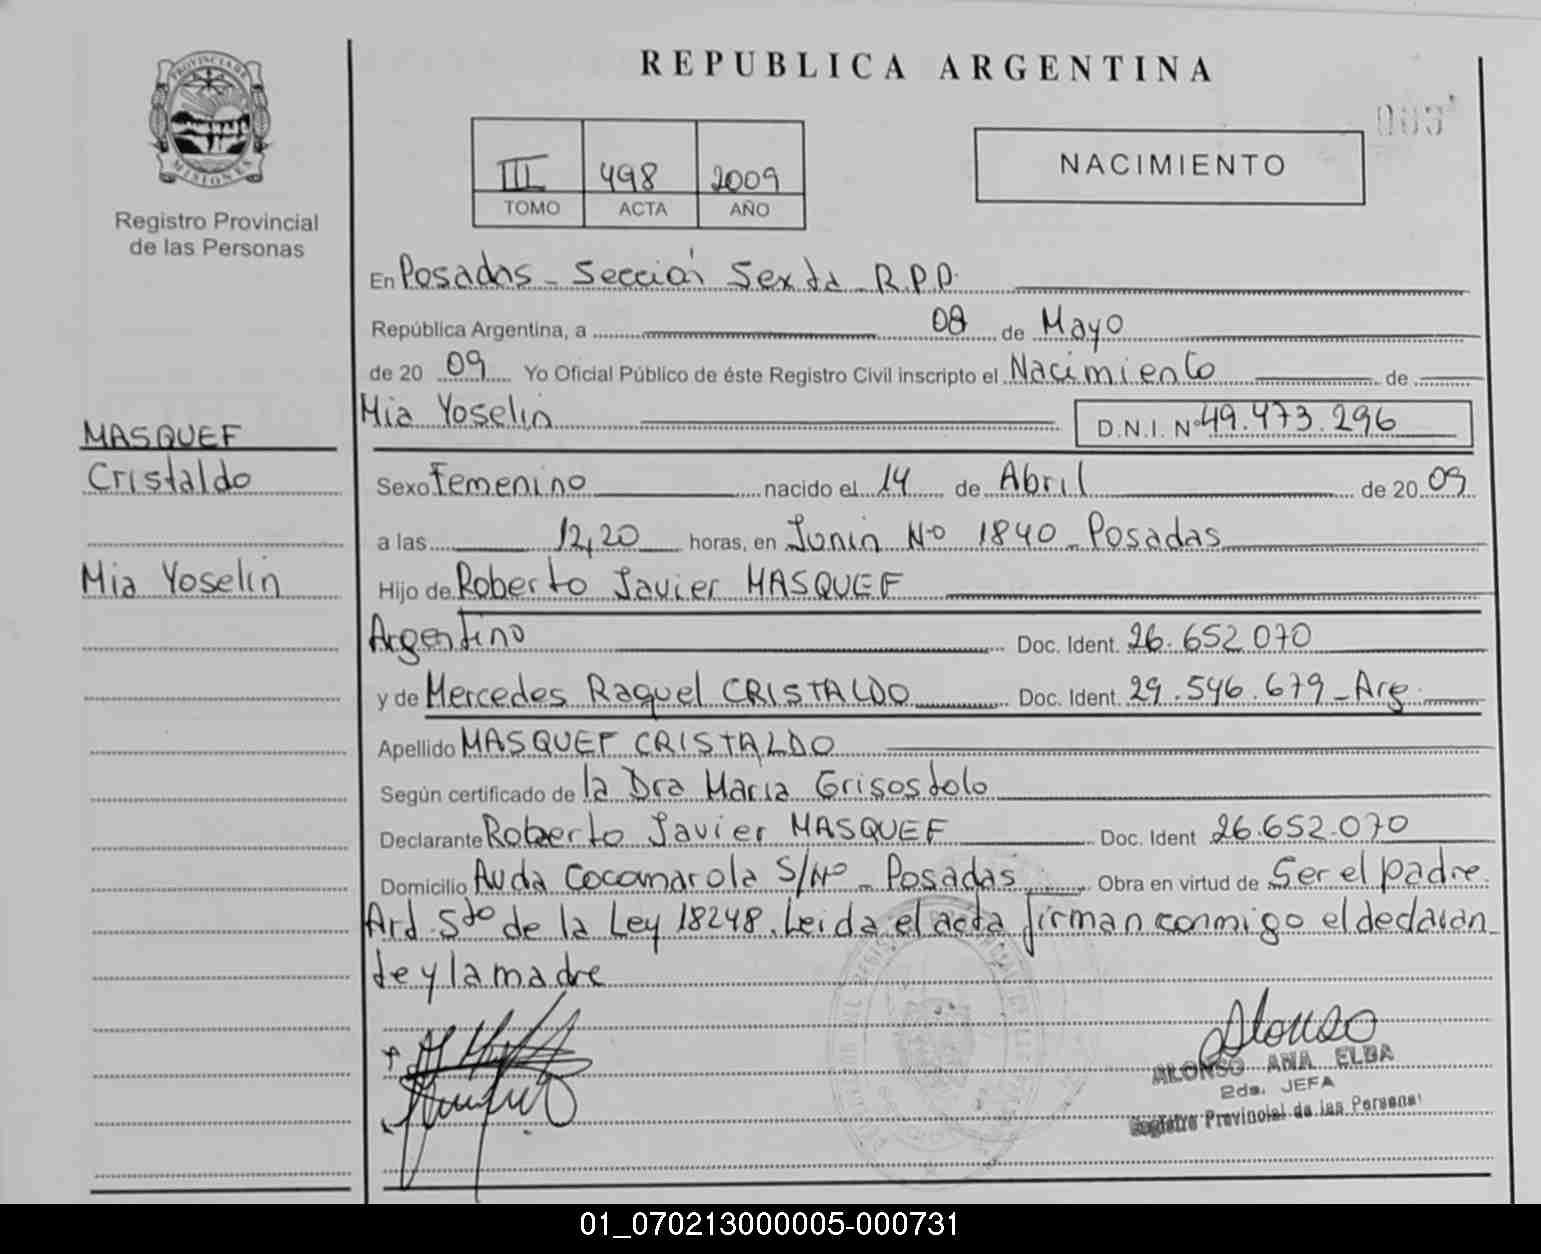 REPUBLICA ARGENTINA
PROVINCIA DE
MISIONES
Registro Provincial
de las Personas
III 498 2009
TOMO ACTA AÑO
NACIMIENTO
En Posadas - Sección Sexta R.P.P.
República Argentina, a 08 de Mayo
de 20 09 Yo Oficial Público de éste Registro Civil inscripto el Nacimiento de
Mia Yoselin D.N.I. Nº 49.473.296
MASQUEF
Cristaldo
Mia Yoselin
Sexo Femenino nacido el 14 de Abril de 20 09
a las 12,20 horas, en Junin Nº 1840 - Posadas
Hijo de Roberto Javier MASQUEF
Argentino Doc. Ident. 26.652.070
y de Mercedes Raquel CRISTALDO Doc. Ident. 29.546.679 - Arg.
Apellido MASQUEF CRISTALDO
Según certificado de la Dra Maria Grisostolo
Declarante Roberto Javier MASQUEF Doc. Ident 26.652.070
Domicilio Avda Cocomarola S/Nº - Posadas Obra en virtud de Ser el padre.
Art. 5to de la Ley 18248. Leida el acta firman conmigo el declaran
te y la madre
Alonso
ALONSO ANA ELBA
2da. JEFA
Registro Provincial de las Personas
01_070213000005-000731